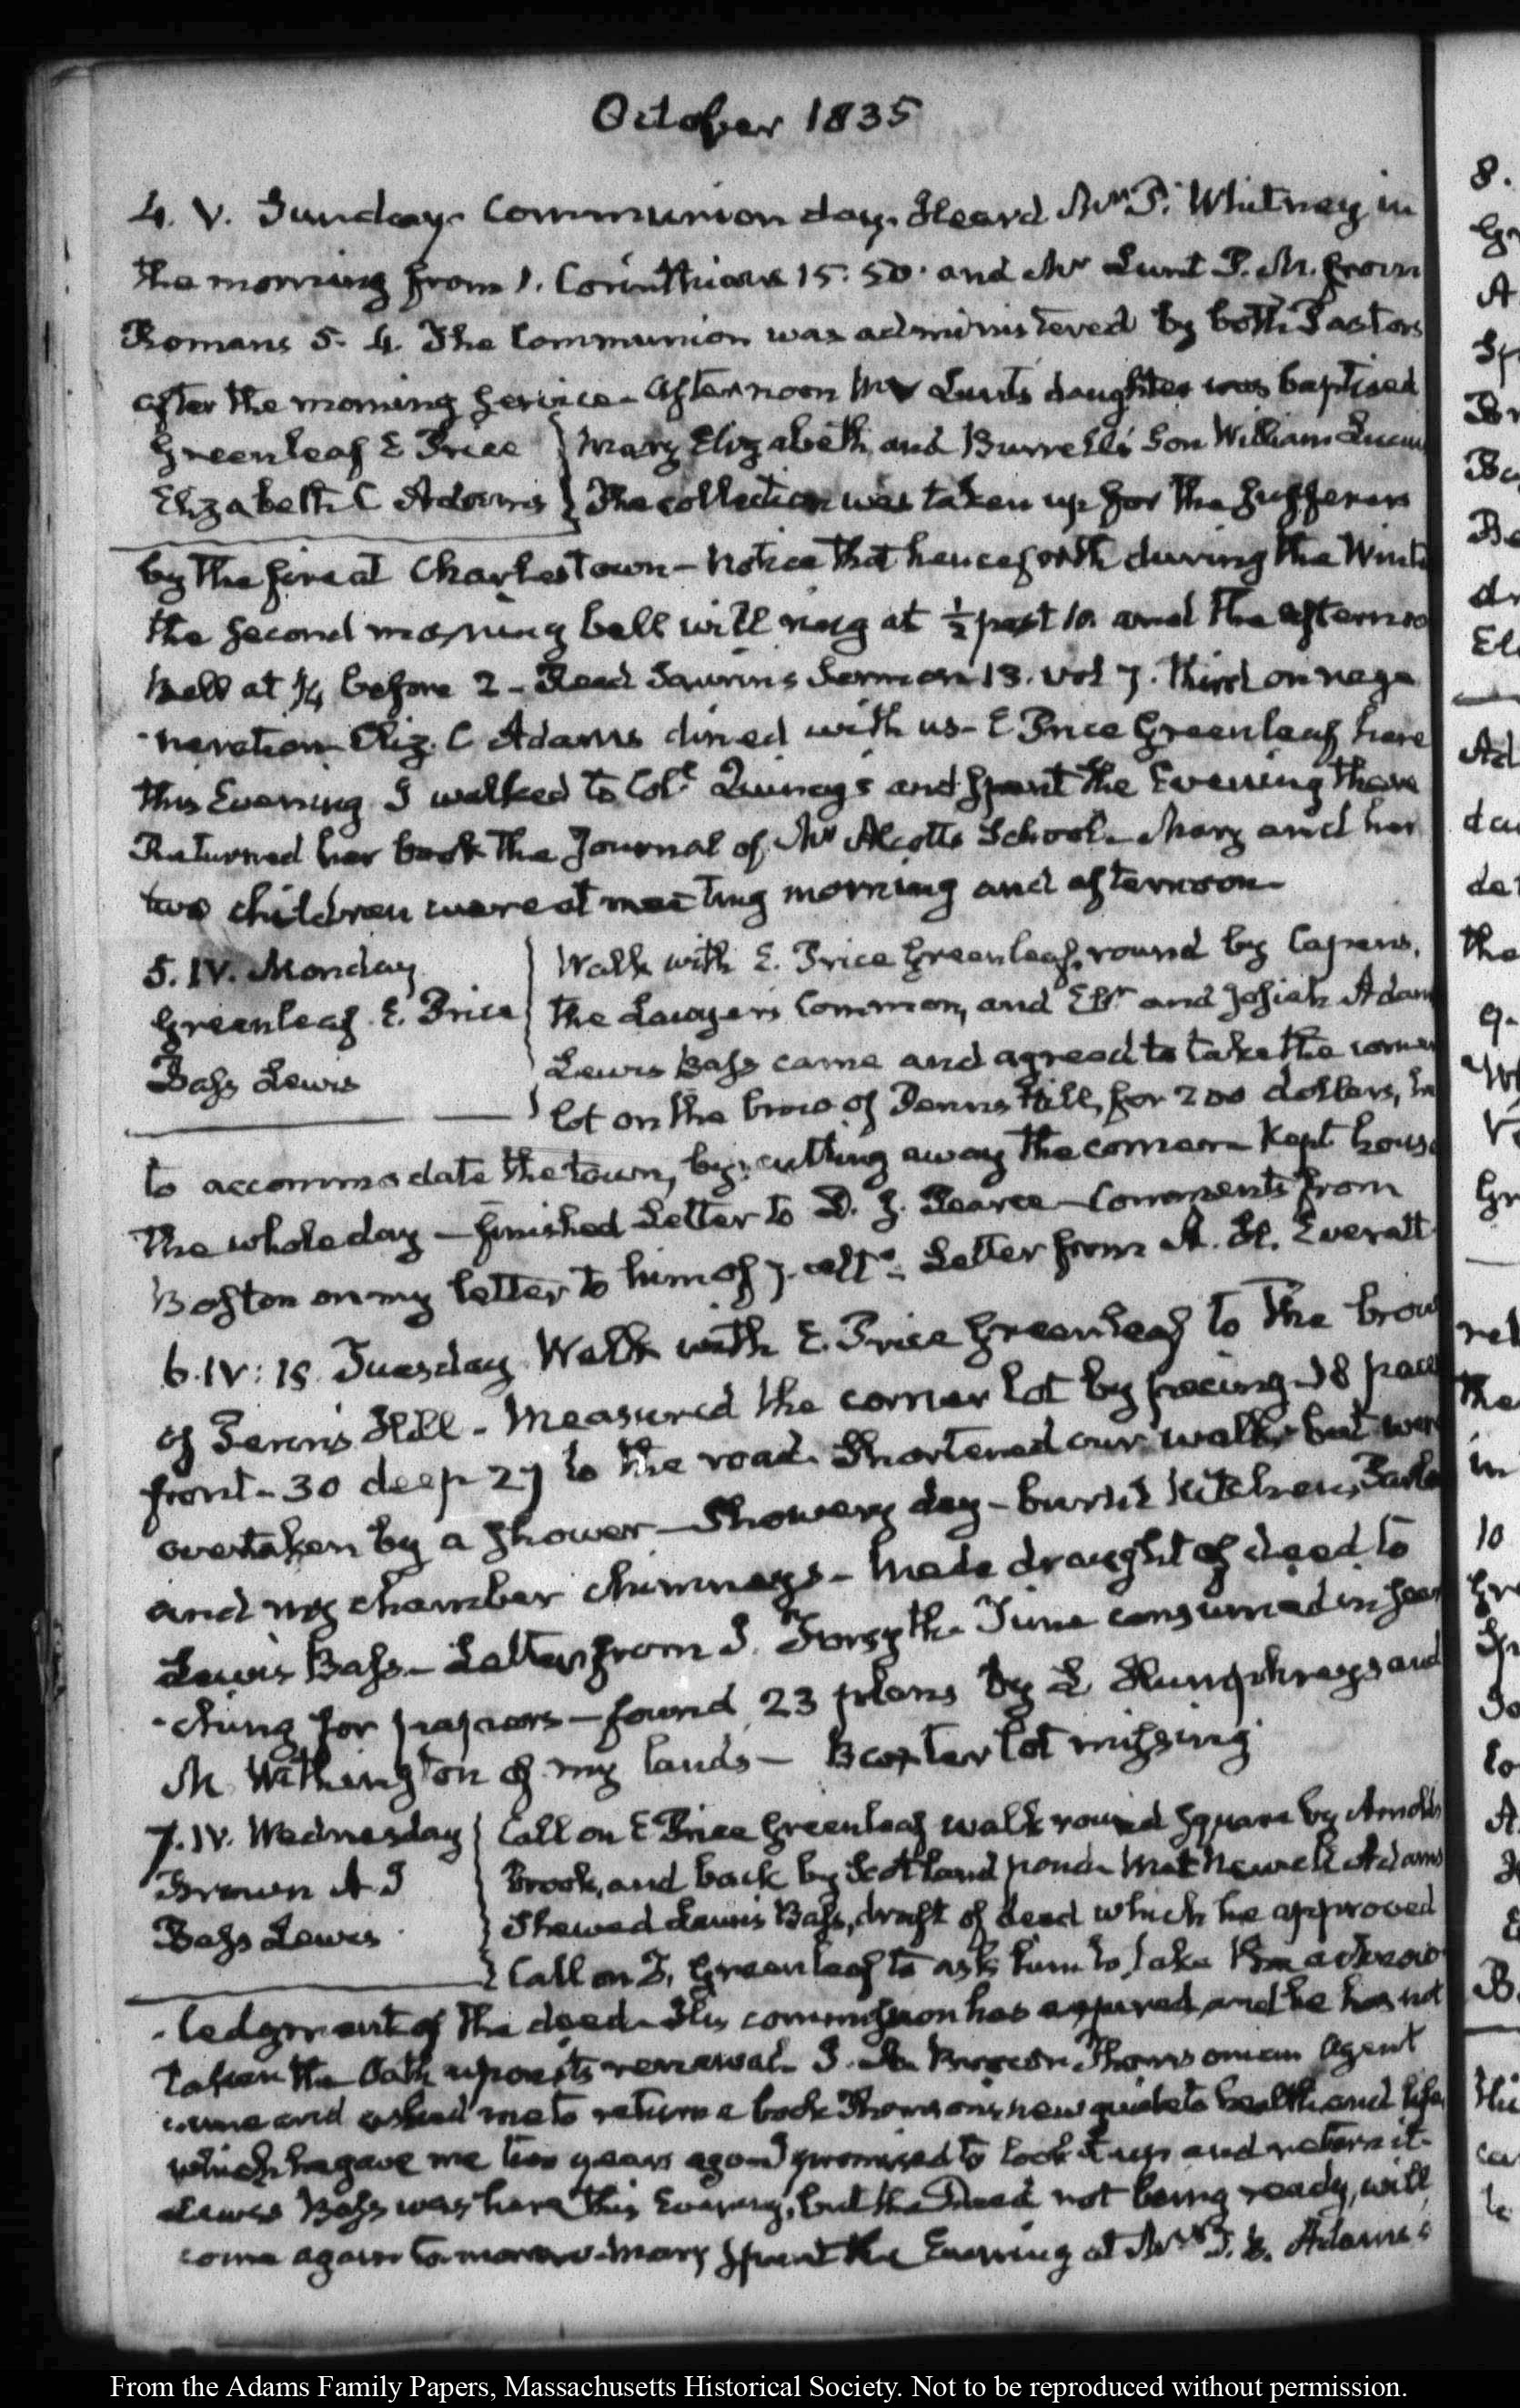 October 1835
4. V. Sunday. Communion day. Heard Mr P. Whitney in
the morning from 1. Corinthians 15. 50. and Mr Lunt P. M. from
Romans 5. 4. The Communion was administered by both Pastors
after the morning service. Afternoon Mr Lunt's daughter was baptised
Greenleaf E Price } Mary Elizabeth, and Burrell's Son William
Elizabeth C Adams } The collection was taken up for the sufferers
by the fire at Charlestown – Notice that henceforth during the Winte
the second morning bell will ring at ½ past 10. and the afternoo
Bell at ¼ before 2 – Read Saurins Sermon 13. vol 7. third on rege
-neration. Eliz. C Adams dined with us – E Price Greenleaf here
this Evening. I walked to Col. Quincy's and spent the Evening there
Returned her book the Journal of Mr Alcotts School. Mary and her
two children were at meeting morning and afternoon –
5. IV. Monday } Walk with E. Price Greenleaf, round by Capens,
Greenleaf. E. Price } the Lawyers Common, and Ebr and Josiah Adam
Bass Lewis } Lewis Bass came and agreed to take the corner
lot on the brow of Penns Hill, for 200 dollars,
to accommodate the town, by cutting away the corner – Kept house
the whole day – finished Letter to D. J. Pearce – Comments from
Boston on my letter to him of 7. ulto – Letter from A. H. Everett
6. IV: 15. Tuesday. Walk with E. Price Greenleaf to the brow
of Penn's Hill – Measured the corner lot by pacing – 18 pace
front – 30 deep 27 to the road. Shortened our walk, but were
overtaken by a shower – Showery day – burnt Kitchen, Parlo
and my chamber chimneys – Made draught of deed to
Lewis Bass – Letter from J. Forsyth. Time consumed in sear
-ching for papers – found 23 plans by L Humphreys and
M. Withington of my lands – lot missing
7. IV. Wednesday } Call on E Price Greenleaf walk round square by Arnolds
Brown A J } Brook, and back by Scotland pond – Met Newell Adams
Bass Lewis } Shewed Lewis Bass, draft of deed which he approved
} Call on T. Greenleaf to ask him to take the acknow
-ledgment of the deed – His commission has expired, and he has not
taken the Oath upon its renewal. Thomsonian Agent
came and asked me to return a book Thomson's new guide to health, and life
which he gave me two years ago – I promised to look it up and return it.
Lewis Bass was here this Evening, but the Deed not being ready, will
come again to-morrow. Mary spent the Evening at Mrs T. B. Adams's
From the Adams Family Papers, Massachusetts Historical Society. Not to be reproduced without permission.